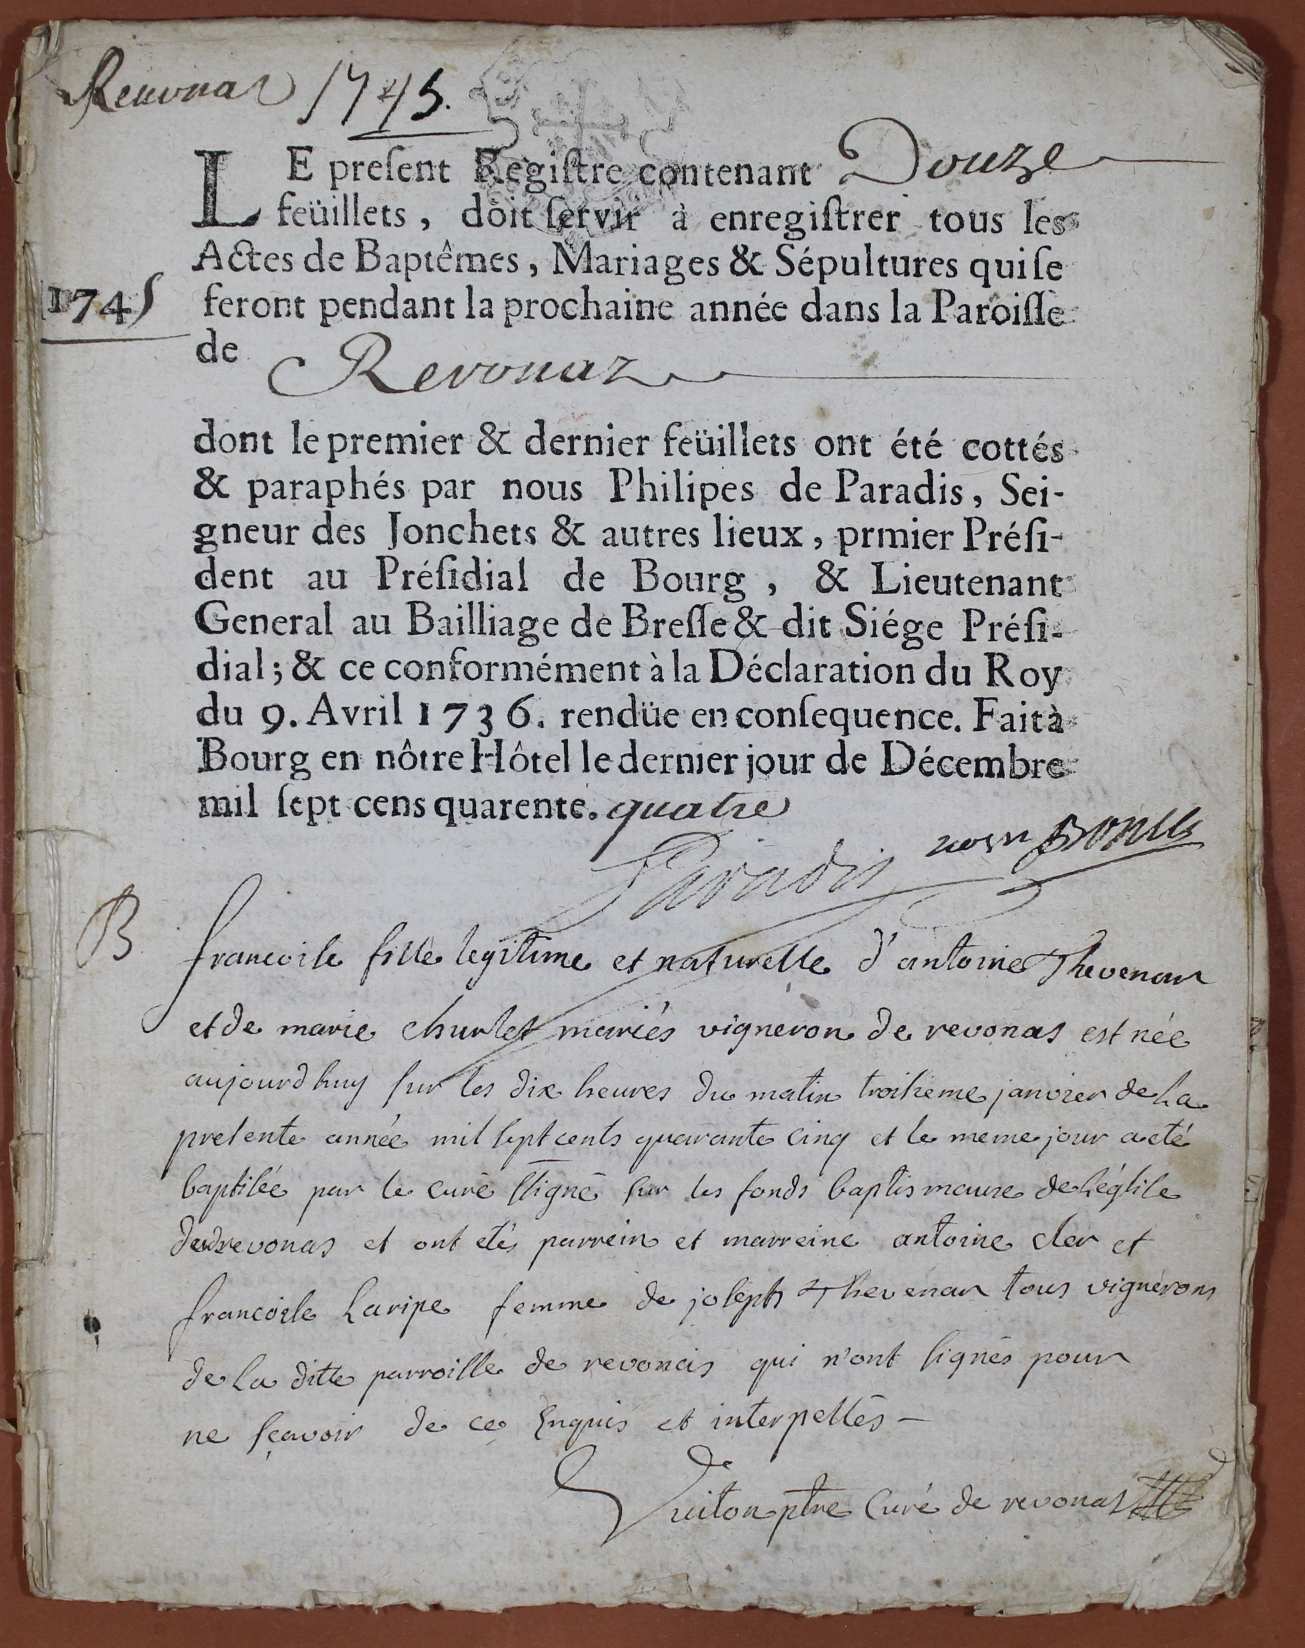 Revonas 1745.
LE present Registre contenant Douze
feüillets, doit servir à enregistrer tous les
Actes de Baptêmes, Mariages & Sépultures qui se
1745 feront pendant la prochaine année dans la Paroisse
de Revonaz
dont le premier & dernier feüillets ont été cottés
& paraphés par nous Philipes de Paradis, Sei-
gneur des Jonchets & autres lieux, prmier Prési-
dent au Présidial de Bourg, & Lieutenant
General au Bailliage de Bresse & dit Siége Prési-
dial; & ce conformément à la Déclaration du Roy
du 9. Avril 1736. rendüe en consequence. Fait à
Bourg en nôtre Hôtel le dernier jour de Décembre
mil sept cens quarente. quatre
Paradis
B francoise fille legitime et naturelle d'antoine Thevenar
et de marie churlet mariés vigneron de revonas est née
aujourdhuy sur les dix heures du matin troisieme janvier de La
presente année mil sept cents quarante cinq et le meme jour a eté
baptisée par le curé ssigné sur les fonds baptismaux de L'église
de revonas et ont etés parrein et marreine antoine cler et
francoise Laripe femme de joseph Thevenar tous vignerons
de La ditte parroisse de revonas qui n'ont signés pour
ne sçavoir de ce Enquis et interpellés —
Guiton ptre Curé de revonas